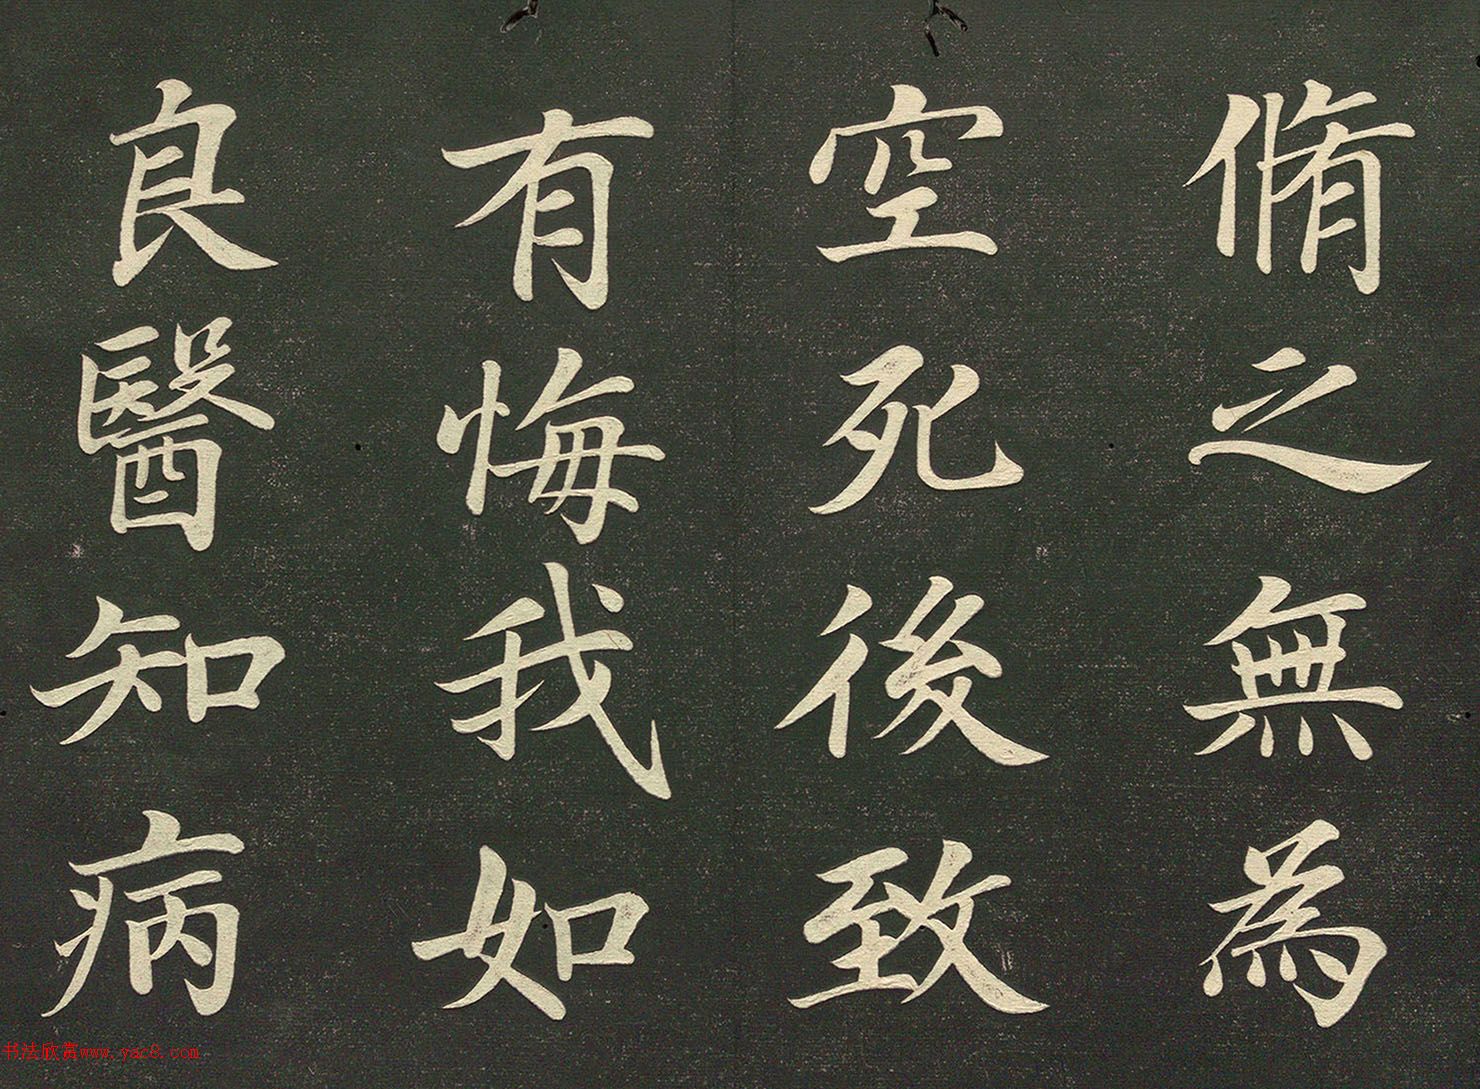 脩之無為
空死後致
有悔我如
良醫知病
书法欣赏www.yac8.com